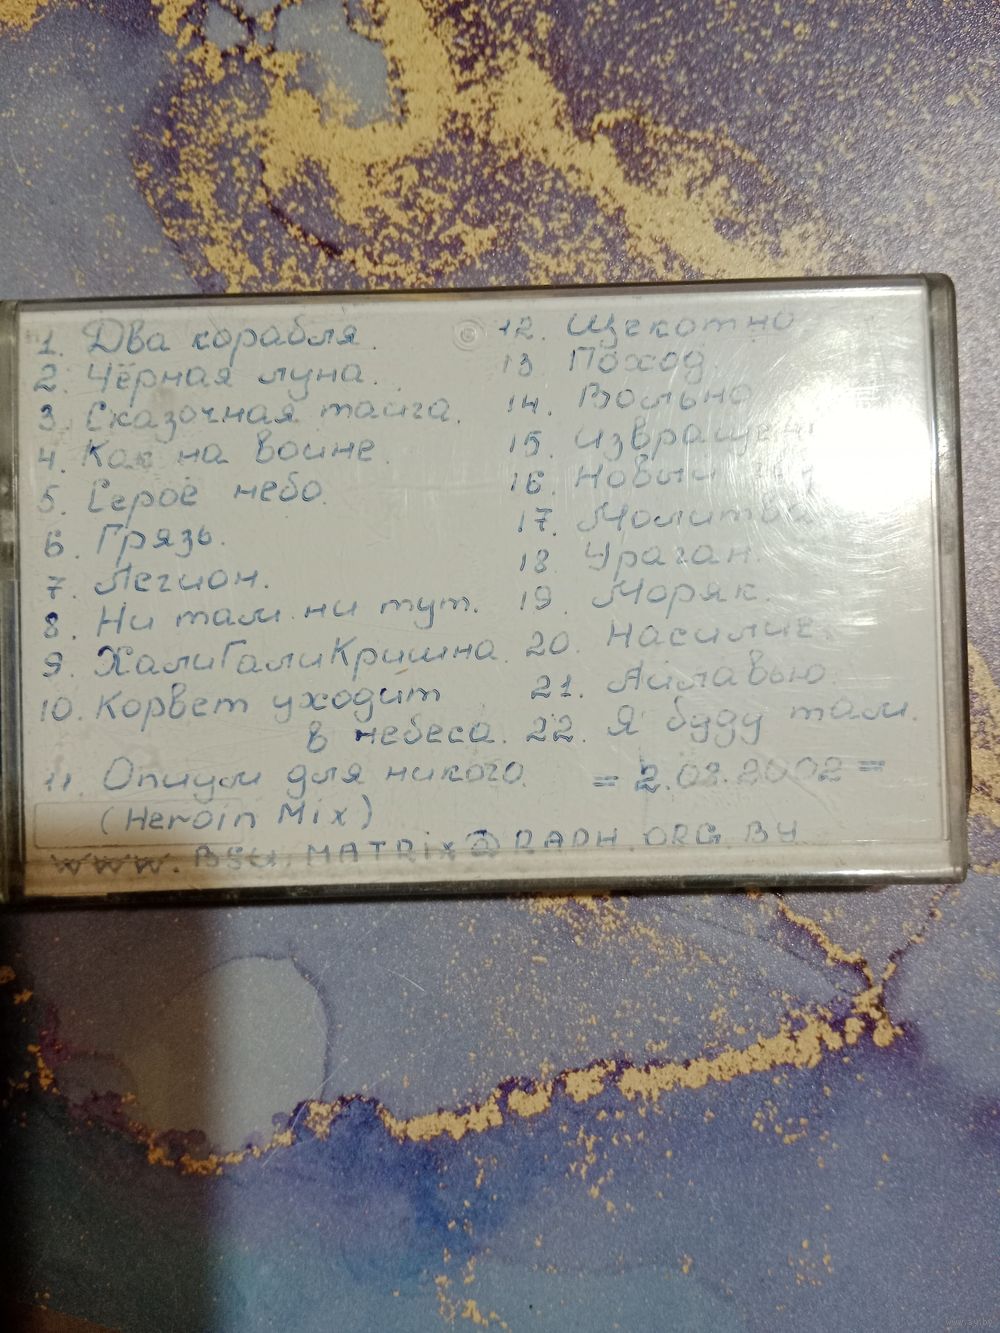 1. Два корабля.
2. Чёрная луна.
3. Сказочная тайга.
4. Как на войне.
5. Серое небо.
6. Грязь.
7. Легион.
8. Ни там ни тут.
9. ХалиГалиКришна.
10. Корвет уходит
в небеса.
11. Опиум для никого
(Heroin Mix)
©
12. Щекотно
13 Поход
14. Вольно
15.
16. Новый
17. Молитва
18. Ураган.
19. Моряк.
20. Насилие.
21. Айлавью.
22. Я буду там.
= 2.08.2002 =
www. BSU.MATRIX@RAPH.ORG.BY
www.ay.by